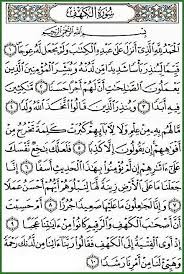 سُورَةُ الكَهْفِ
بِسْمِ اللَّهِ الرَّحْمَٰنِ الرَّحِيمِ
ٱلْحَمْدُ لِلَّهِ ٱلَّذِىٓ أَنزَلَ عَلَىٰ عَبْدِهِ ٱلْكِتَـٰبَ وَلَمْ يَجْعَل لَّهُۥ عِوَجَا ۜ ١
قَيِّمًا لِّيُنذِرَ بَأْسًا شَدِيدًا مِّن لَّدُنْهُ وَيُبَشِّرَ ٱلْمُؤْمِنِينَ ٱلَّذِينَ
يَعْمَلُونَ ٱلصَّـٰلِحَـٰتِ أَنَّ لَهُمْ أَجْرًا حَسَنًا ٢ مَّـٰكِثِينَ فِيهِ
أَبَدًا ٣ وَيُنذِرَ ٱلَّذِينَ قَالُوا۟ ٱتَّخَذَ ٱللَّهُ وَلَدًا ٤
مَّا لَهُم بِهِۦ مِنْ عِلْمٍ وَلَا لِـَٔابَآئِهِمْ ۚ كَبُرَتْ كَلِمَةً تَخْرُجُ مِنْ
أَفْوَٰهِهِمْ ۚ إِن يَقُولُونَ إِلَّا كَذِبًا ٥ فَلَعَلَّكَ بَـٰخِعٌ نَّفْسَكَ
عَلَىٰٓ ءَاثَـٰرِهِمْ إِن لَّمْ يُؤْمِنُوا۟ بِهَـٰذَا ٱلْحَدِيثِ أَسَفًا ٦
إِنَّا جَعَلْنَا مَا عَلَى ٱلْأَرْضِ زِينَةً لَّهَا لِنَبْلُوَهُمْ أَيُّهُمْ أَحْسَنُ عَمَلًا
٧ وَإِنَّا لَجَـٰعِلُونَ مَا عَلَيْهَا صَعِيدًا جُرُزًا ٨ أَمْ حَسِبْتَ
أَنَّ أَصْحَـٰبَ ٱلْكَهْفِ وَٱلرَّقِيمِ كَانُوا۟ مِنْ ءَايَـٰتِنَا عَجَبًا ٩
إِذْ أَوَى ٱلْفِتْيَةُ إِلَى ٱلْكَهْفِ فَقَالُوا۟ رَبَّنَآ ءَاتِنَا مِن لَّدُنكَ رَحْمَةً
وَهَيِّئْ لَنَا مِنْ أَمْرِنَا رَشَدًا ١٠